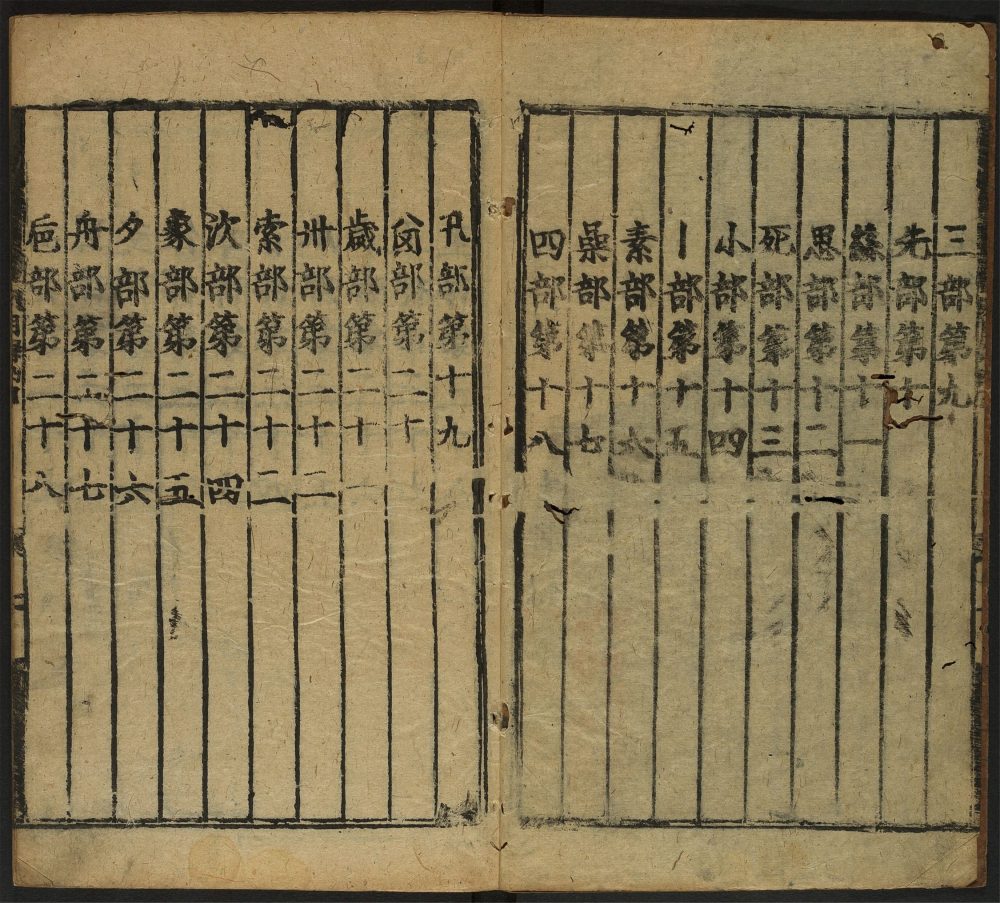 三部第九
先部第十
部第十一
思部第十二
死部第十三
小部第十四
丨部第十五
素部第十六
喿部第十七
四部第十八
卂部第十九
部第二十
歲部第二十一
卅部第二十二
索部第二十三
㳄部第二十四
象部第二十五
夕部第二十六
舟部第二十七
巵部第二十八